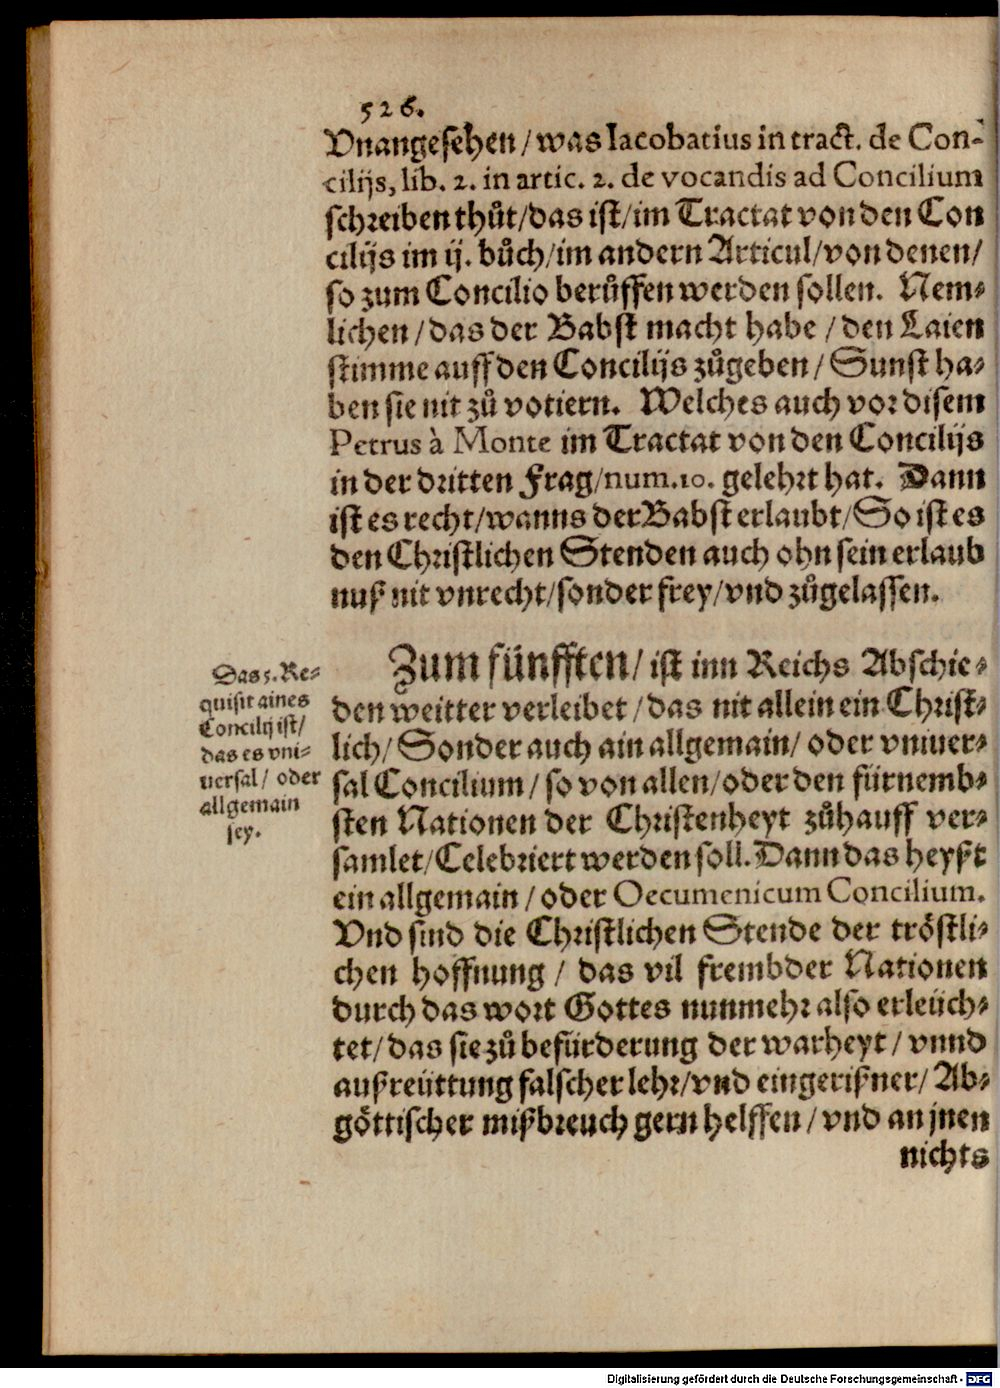 526.
Vnangesehen/was Iacobatius in tract. de Con-
cilijs, lib. 2. in artic. 2. de vocandis ad Concilium
schreiben thůt/das ist/im Tractat von den Con
cilijs im ij. bůch/im andern Articul/von denen/
so zum Concilio berůffen werden sollen. Nem-
lichen/das der Babst macht habe/den Laien
stimme auff den Concilijs zůgeben/Sunst ha-
ben sie nit zů votiern. Welches auch vor disem
Petrus à Monte im Tractat von den Concilijs
in der dritten Frag/num.10. gelehrt hat. Dann
ist es recht/wanns der Babst erlaubt/So ist es
den Christlichen Stenden auch ohn sein erlaub
nuß nit vnrecht/sonder frey/vnd zůgelassen.
Zum fünfften/ist inn Reichs Abschie-
den weitter verleibet/das nit allein ein Christ-
lich/Sonder auch ain allgemain/oder vniuer-
sal Concilium/so von allen/oder den fürnemb-
sten Nationen der Christenheyt zůhauff ver-
samlet/Celebriert werden soll. Dann das heyßt
ein allgemain/oder Oecumenicum Concilium.
Vnd sind die Christlichen Stende der tröstli-
chen hoffnung/das vil frembder Nationen
durch das wort Gottes nunmehr also erleüch-
tet/das sie zů befürderung der warheyt/vnnd
außreüttung falscher lehr/vnd eingerißner/Ab-
göttischer mißbreuch gern helffen/vnd an jnen
nichts
Das 5. Re-
quisit aines
Concilij ist/
das es vni-
uersal/oder
allgemain
sey.
Digitalisierung gefördert durch die Deutsche Forschungsgemeinschaft - DFG